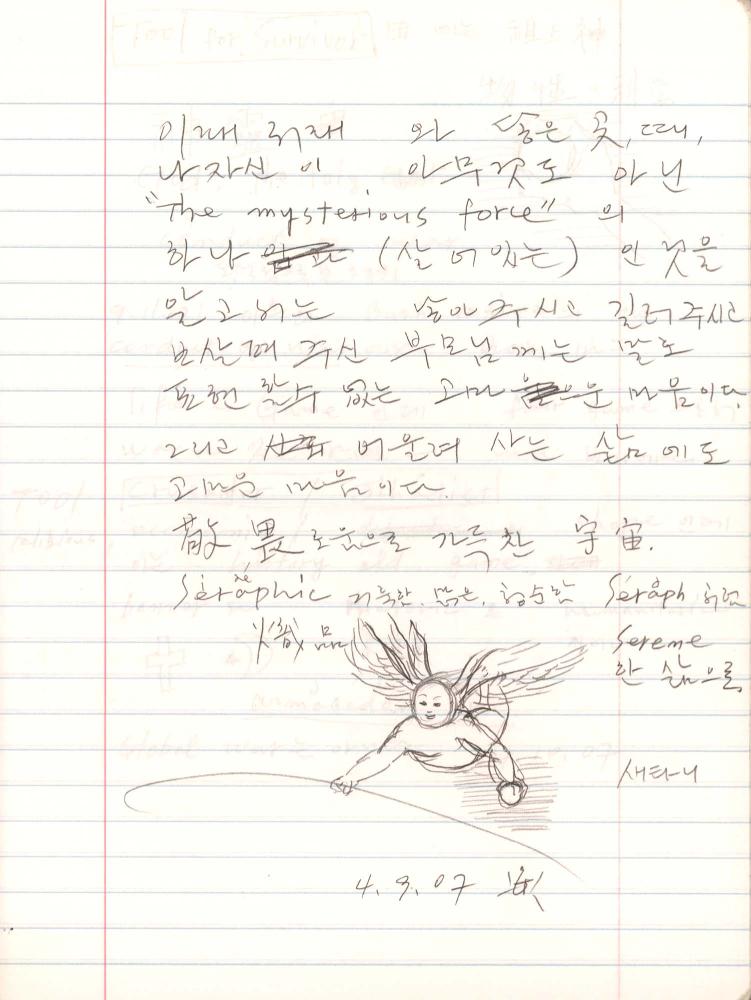 나 자신이 아무것도 아닌
"The mysterious force" 의
하나 (살어있는) 인 것을
알고 낳아 주시고 길러주시고
보살펴 주신 부모님께는 말로
표현할수 없는 고마운 마음이다.
그리고 어울려 사는 삶에도
고마운 마음이다.
畏로움으로 가득찬 宇宙.
Séraphic 거룩한, 맑은, Séraph 처럼
熾品
Sereme
한 삶으로.
새타니
4. 3. 07